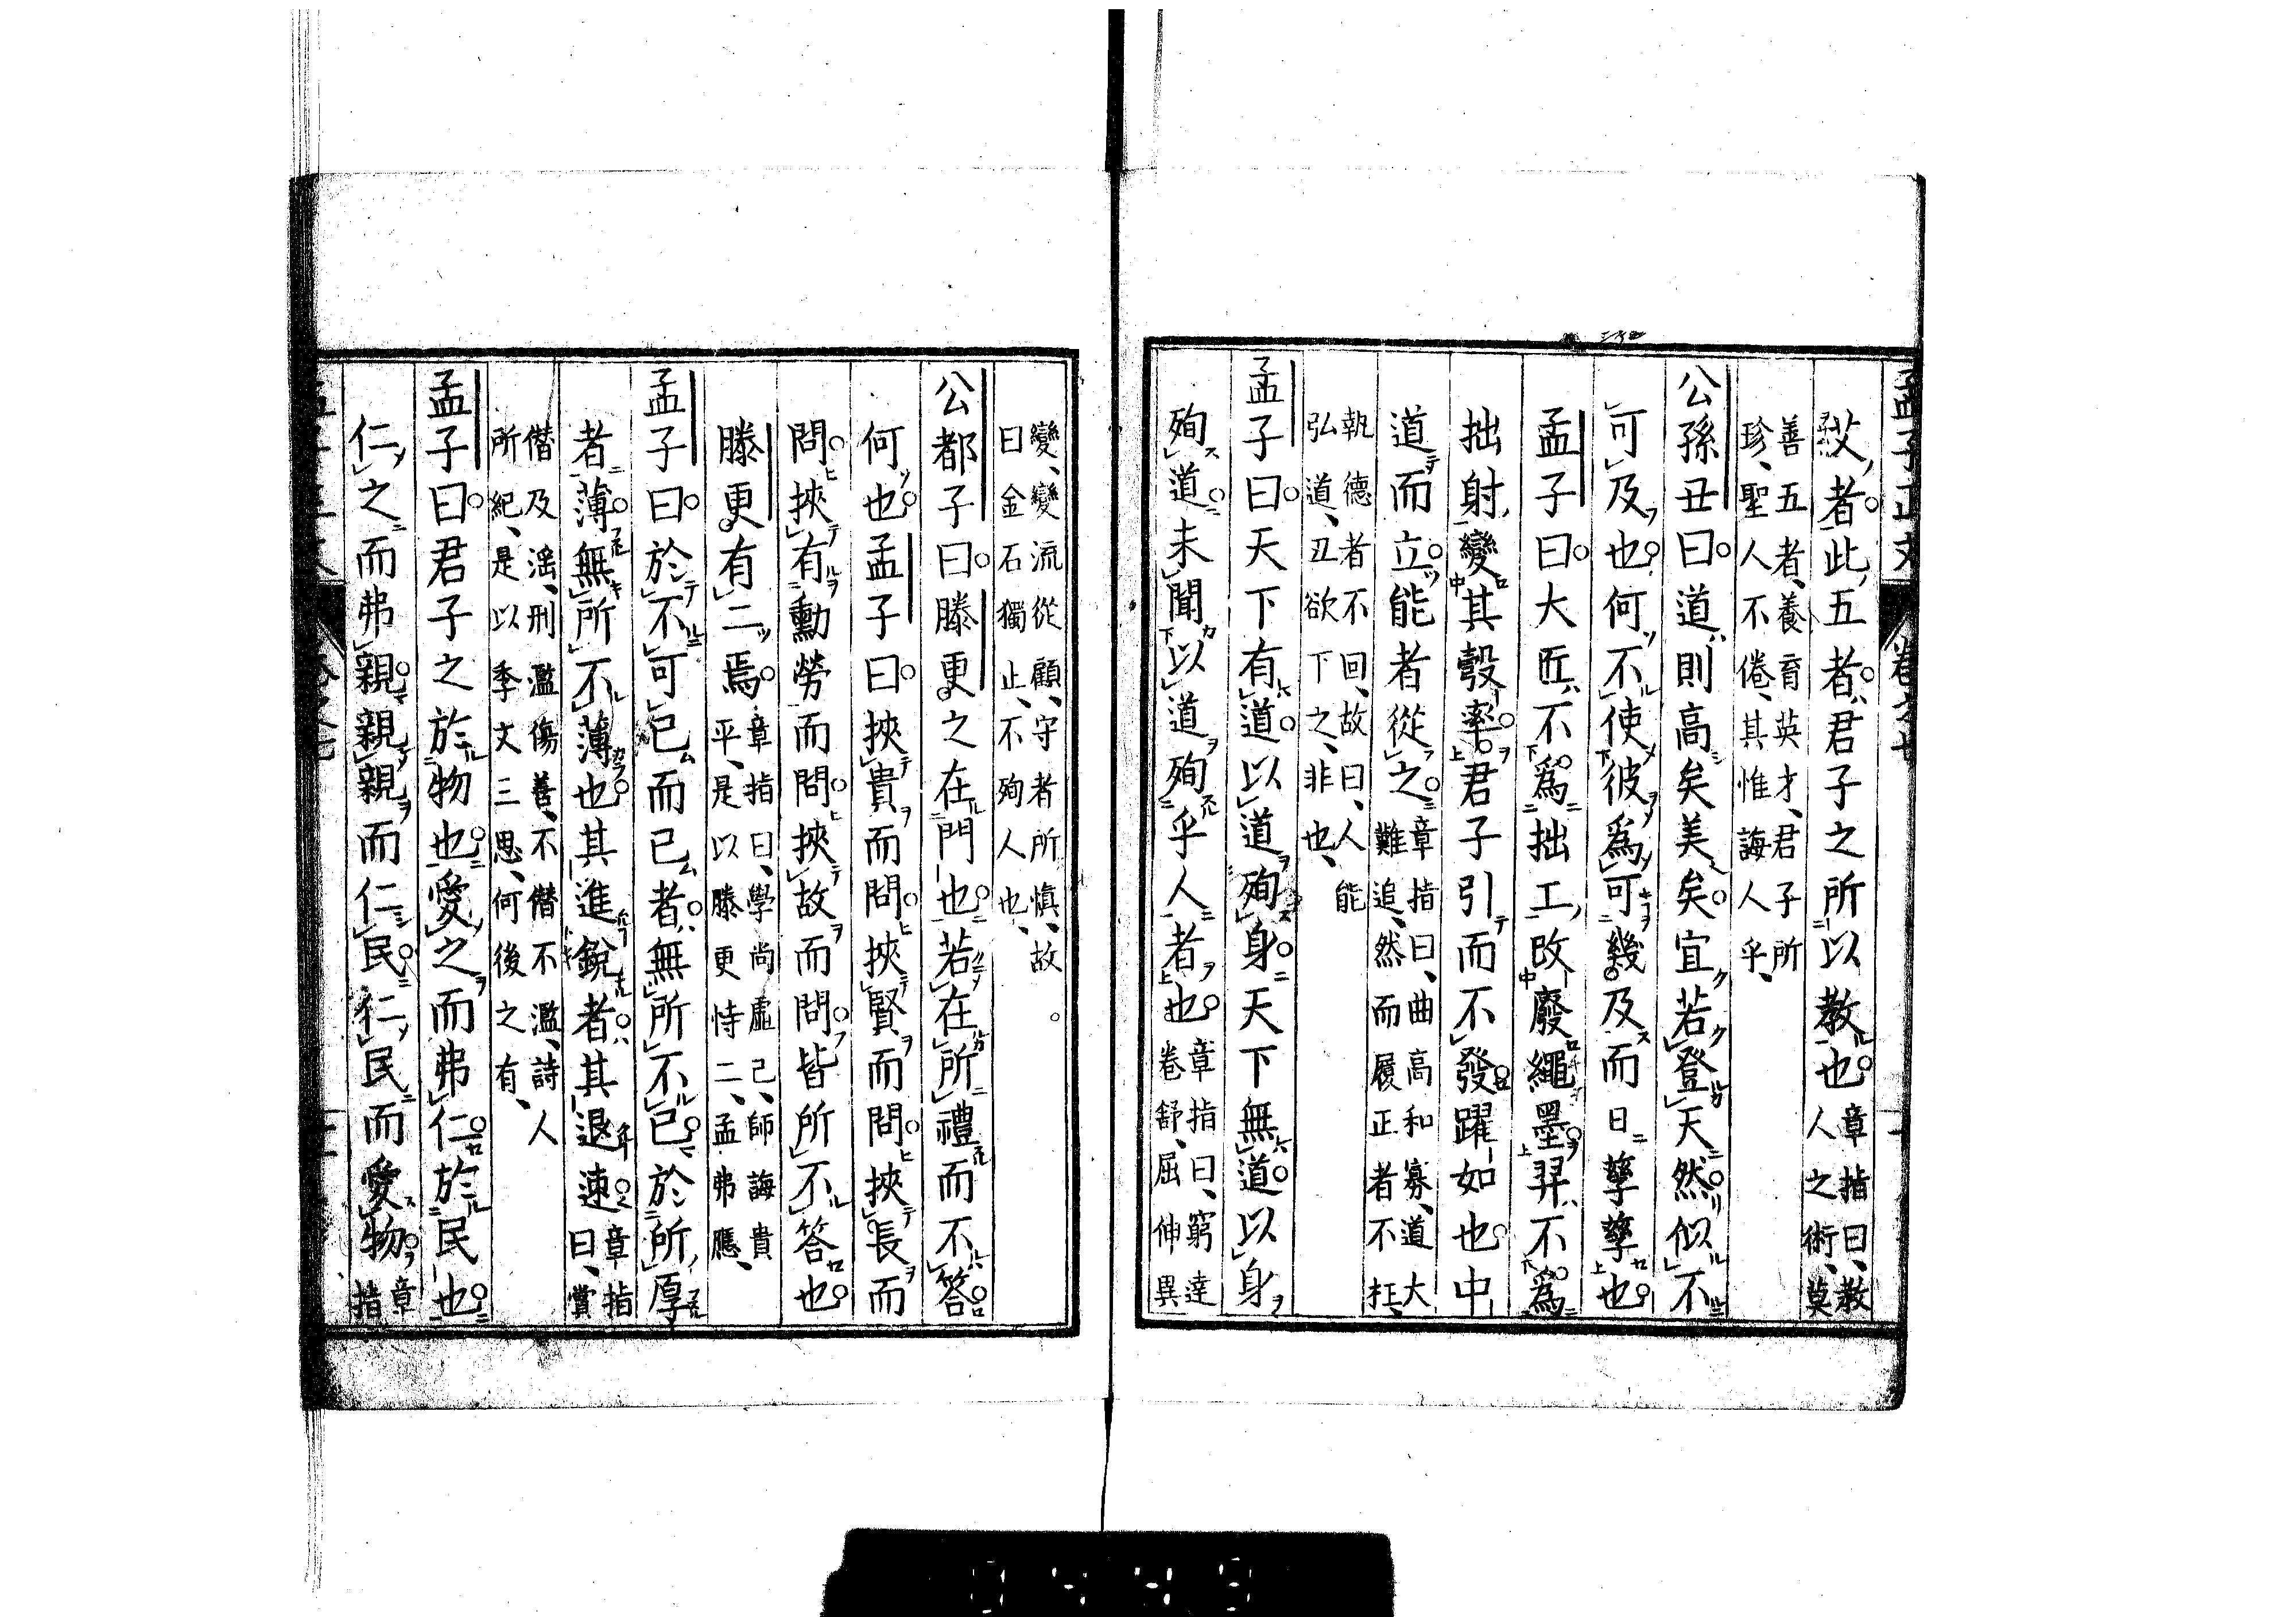 孟子正文 卷之七
艾者此五者君子之所以教也章指曰教
人之術莫
善五者養育英才君子所
珍聖人不倦其惟誨人乎
公孫丑曰道則高矣美矣宜若登天然似不
可及也何不使彼爲可幾及而日孳孳也
孟子曰大匠不爲拙工改廢繩墨羿不爲
拙射變其彀率君子引而不發躍如也中
道而立能者從之章指曰曲高和寡道大
難追然而履正者不枉
執德者不回故曰人能
弘道丑欲下之非也
孟子曰天下有道以道殉身天下無道以身
殉道未聞以道殉乎人者也章指曰窮達
卷舒屈伸異
變變流從顧守者所慎故
曰金石獨止不殉人也
公都子曰滕更之在門也若在所禮而不答
何也孟子曰挾貴而問挾賢而問挾長而
問挾有勳勞而問挾故而問皆所不答也
滕更有二焉章指曰學尚虛己師誨貴
平是以滕更恃二孟弗應
孟子曰於不可已而已者無所不已於所厚
者薄無所不薄也其進銳者其退速章指
曰賞
僭及淫刑濫傷善不僭不濫詩人
所紀是以季文三思何後之有
孟子曰君子之於物也愛之而弗仁於民也
仁之而弗親親親而仁民仁民而愛物章
指